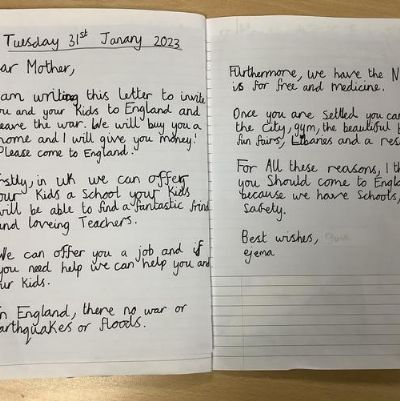 Tuesday 31st Janary 2023
ar Mother,
am writing this letter to invite
ou and your Kids to England and
eave the war. We will buy you a
home and I will give you money!
Please come to England.
rstly, in uk we can offer
our Kids a school your Kids
will be able to find a fantastic frind
and loveing Teachers.
We can offer you a job and if
you need help we can help you and
ur Kids.
n England, there no war or
arthquakes or floods.
Furthermore, we have the N
is for free and medicine.
Once you are settled you ca
the city, gym, the beautiful
fun fairs, Libaries and a res
For All these reasons, I th
you Should come to Engla
because we have Schools,
safety.
Best wishes,
eyema